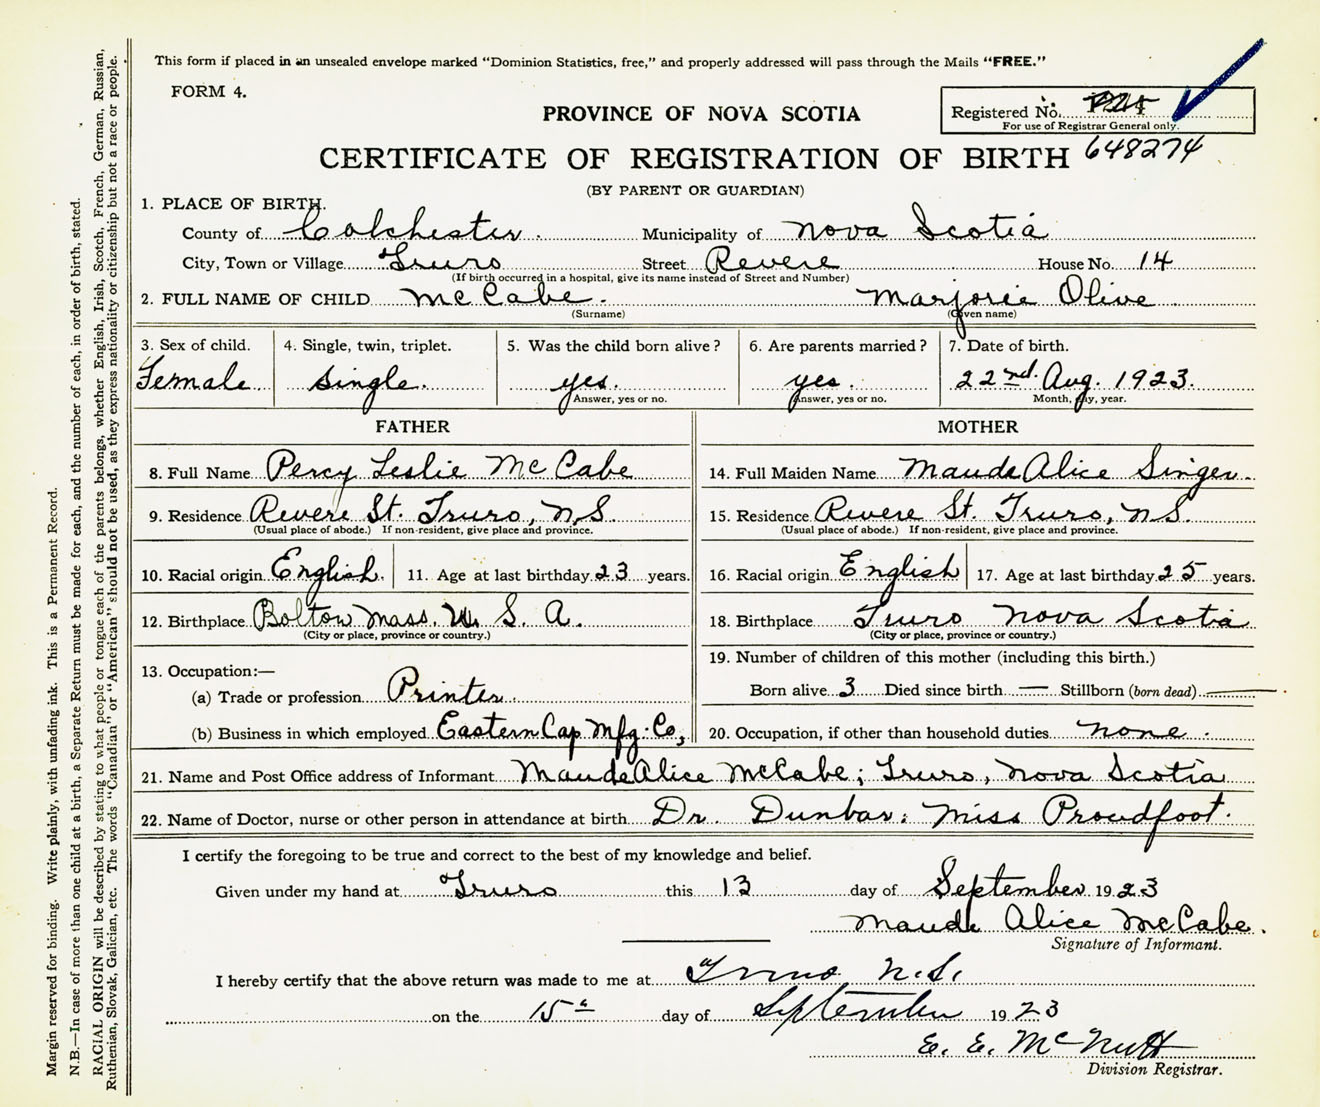 This form if placed in an unsealed envelope marked "Dominion Statistics, free," and properly addressed will pass through the Mails "FREE."
FORM 4.
PROVINCE OF NOVA SCOTIA
Registered No.
For use of Registrar General only.
CERTIFICATE OF REGISTRATION OF BIRTH 648274
(BY PARENT OR GUARDIAN)
1. PLACE OF BIRTH.
County of Colchester. Municipality of Nova Scotia
City, Town or Village Truro Street Revere House No. 14
(If birth occurred in a hospital, give its name instead of Street and Number)
2. FULL NAME OF CHILD McCabe. Marjorie Olive
(Surname) (Given name)
3. Sex of child. 4. Single, twin, triplet. 5. Was the child born alive? 6. Are parents married? 7. Date of birth.
Female single. yes. yes. 22nd. Aug. 1923.
Answer, yes or no. Answer, yes or no. Month, day, year.
FATHER MOTHER
8. Full Name Percy Leslie McCabe 14. Full Maiden Name Maude Alice Singer
9. Residence Revere St. Truro, N.S. 15. Residence Revere St. Truro, N.S.
(Usual place of abode.) If non-resident, give place and province. (Usual place of abode.) If non-resident, give place and province.
10. Racial origin English. 11. Age at last birthday 23 years. 16. Racial origin English 17. Age at last birthday 25 years.
12. Birthplace Bolton Mass. U. S. A. 18. Birthplace Truro Nova Scotia
(City or place, province or country.) (City or place, province or country.)
13. Occupation:— 19. Number of children of this mother (including this birth.)
(a) Trade or profession Printer. Born alive 3 Died since birth — Stillborn (born dead) —
(b) Business in which employed Eastern Cap Mfg. Co, 20. Occupation, if other than household duties none.
21. Name and Post Office address of Informant Maude Alice McCabe; Truro, Nova Scotia
22. Name of Doctor, nurse or other person in attendance at birth Dr. Dunbar; Miss Proudfoot.
I certify the foregoing to be true and correct to the best of my knowledge and belief.
Given under my hand at Truro this 13 day of September 1923
Maude Alice McCabe.
Signature of Informant.
I hereby certify that the above return was made to me at Truro N.S.
on the 15th day of September 1923
E. E. McNutt
Division Registrar.
Margin reserved for binding. Write plainly, with unfading ink. This is a Permanent Record.
N.B.—In case of more than one child at a birth, a Separate Return must be made for each, and the number of each, in order of birth, stated.
RACIAL ORIGIN will be described by stating to what people or tongue each of the parents belongs, whether English, Irish, Scotch, French, German, Russian,
Ruthenian, Slovak, Galician, etc. The words "Canadian" or "American" should not be used, as they express nationality or citizenship but not a race or people.